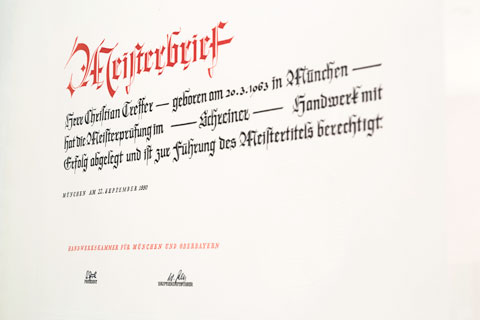 Meisterbrief
Herr Christian Treffer — geboren am 20.3.1963 in München —
hat die Meisterprüfung im — Schreiner — Handwerk mit
Erfolg abgelegt und ist zur Führung des Meistertitels berechtigt.
MÜNCHEN AM 22. SEPTEMBER 1990
HANDWERKSKAMMER FÜR MÜNCHEN UND OBERBAYERN